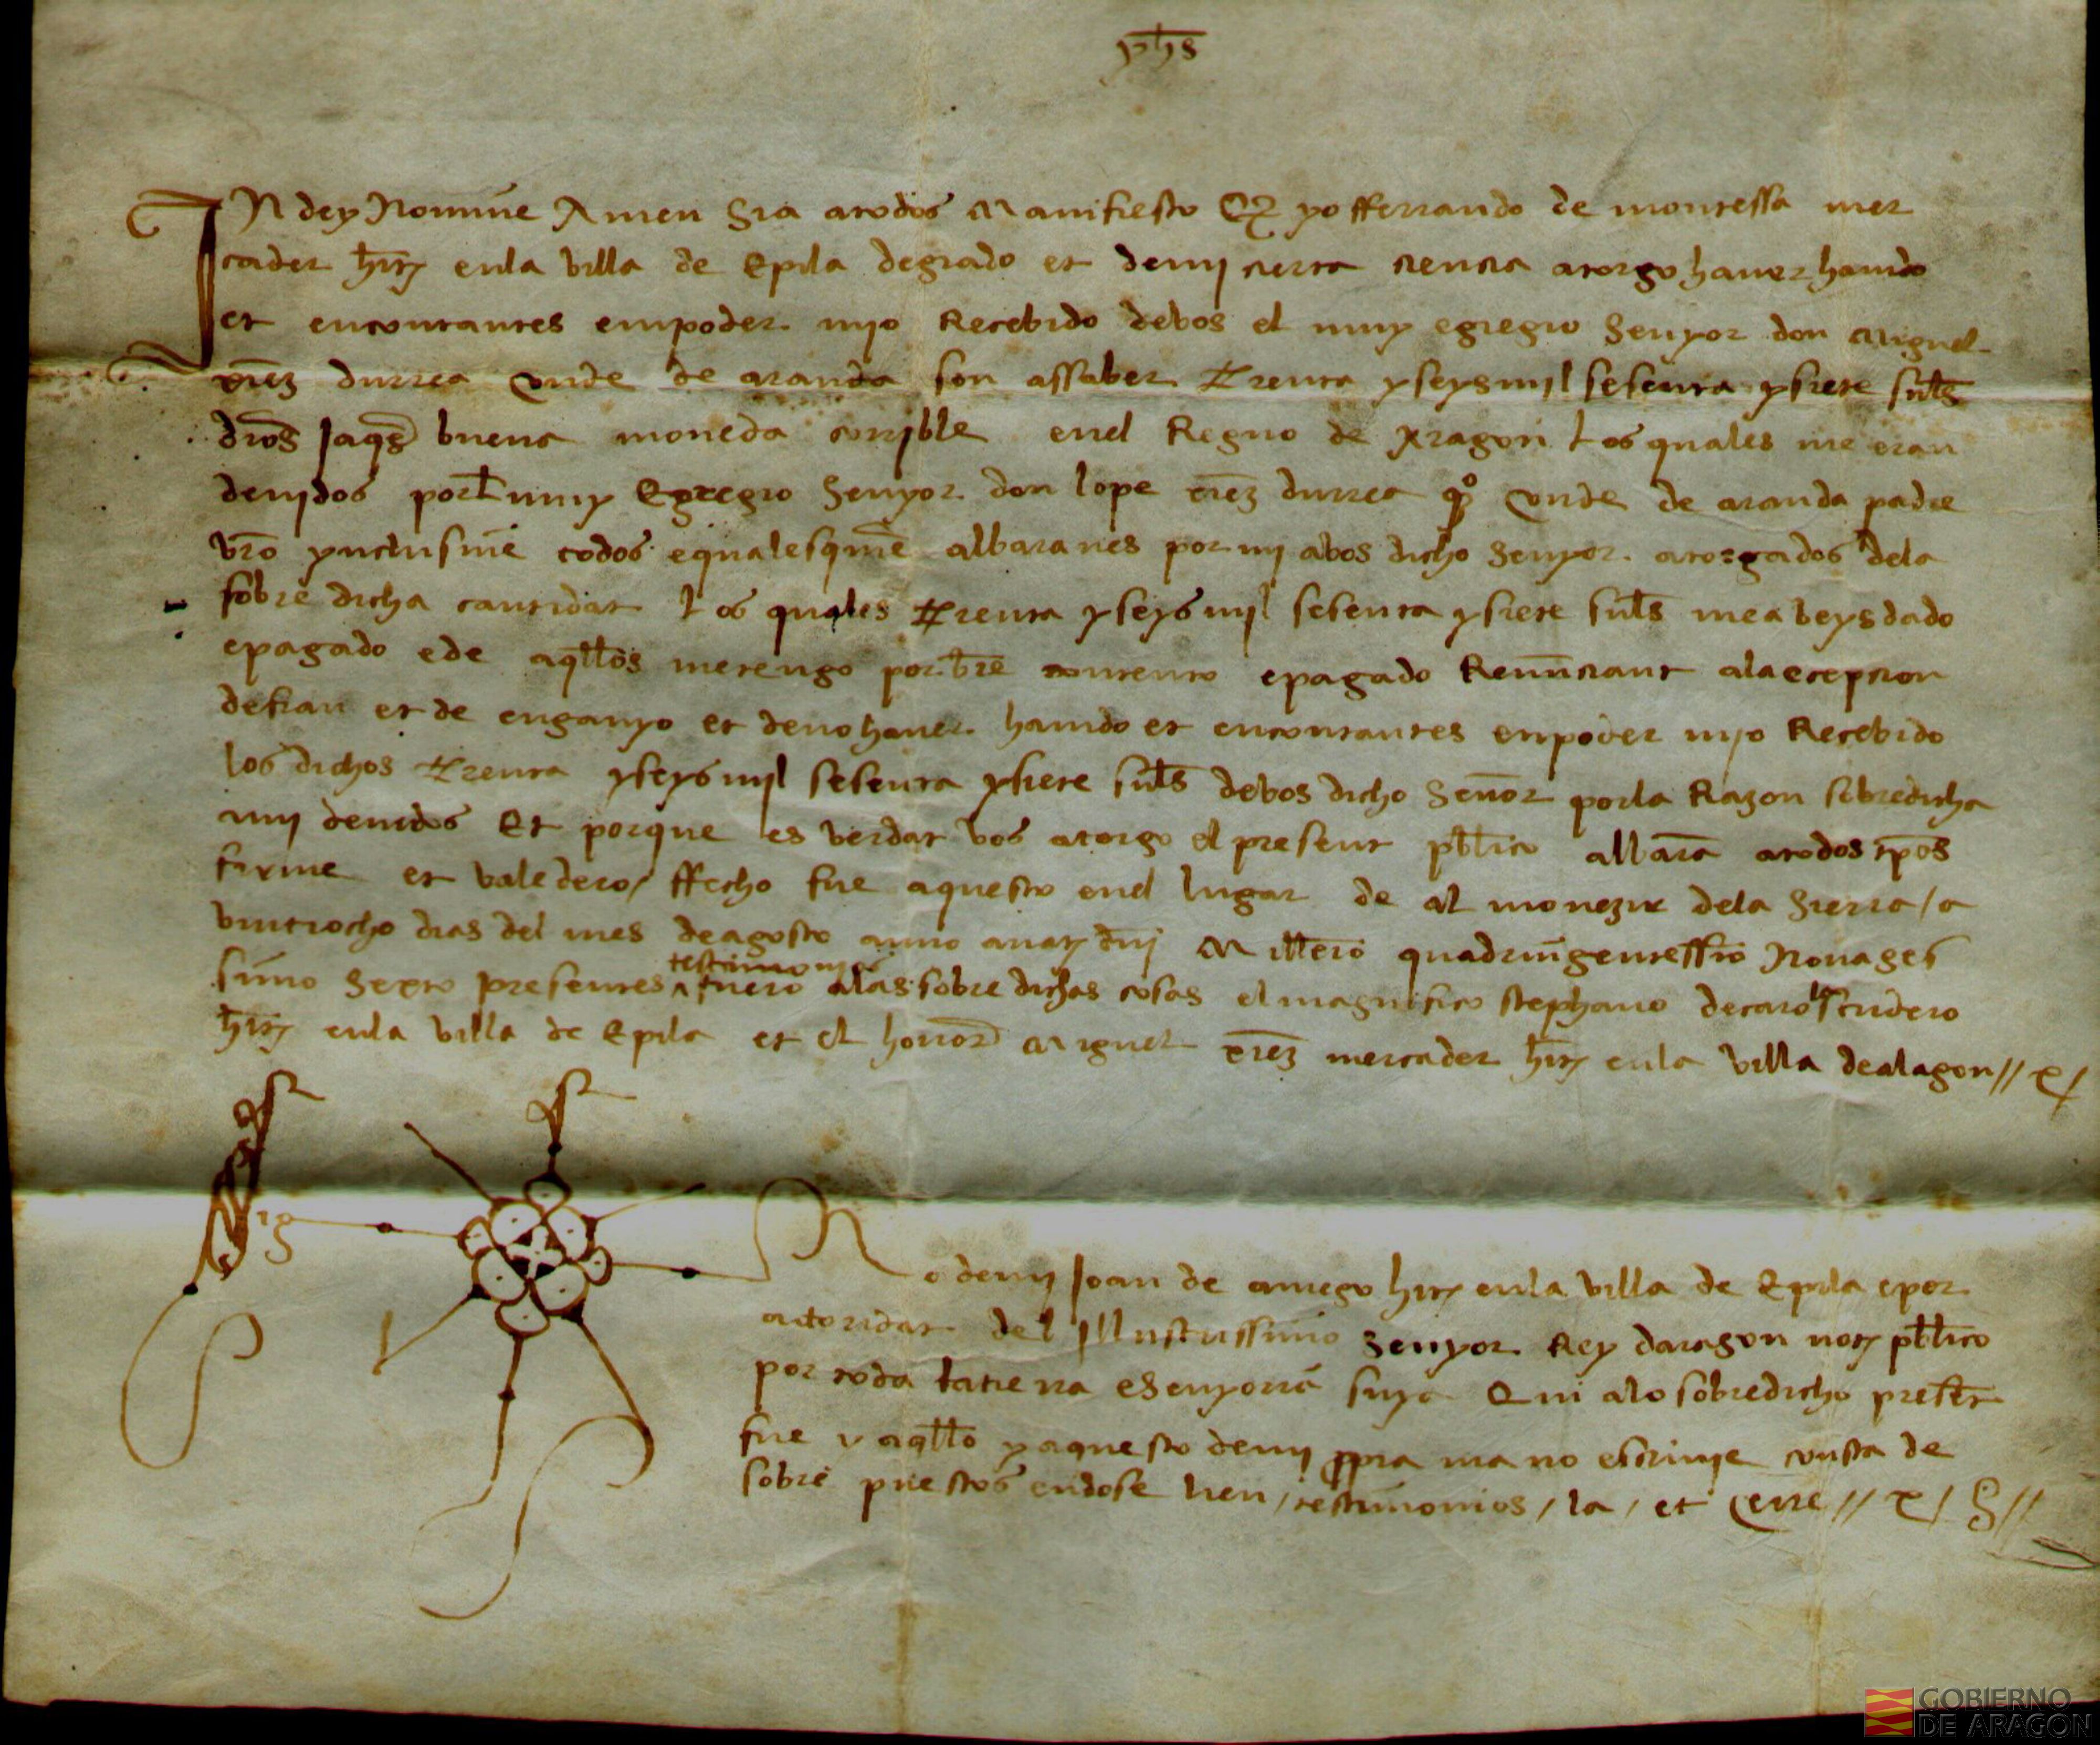 yħs
IN dey Nomine Amen Sia atodos Manifiesto Q̄ yo fferrando de montessa mer
cader h̄itn̄ enla villa de Epila degrado et demi cierta ciencia atorgo hauer hauido
et encontantes enpoder mjo Recebido debos el muy egregio Senyor don Miguel
x̄mez durrea conde de aranda son assaber trenta y seys mjl sesenta y siete suel̄s
dn̄os Jaqs̄ buena moneda corrible enel Regno de Aragon Los quales me eran
deujdos porel muy Egregio Senyor don lope x̄mez durrea qo conde de aranda padre
vr̄o ynclusiue todos equalesqujē albaranes por mj abos dicho Senyor atorgados dela
sobre dicha cantidat Los quales trenta y seys mjl sesenta y siete suel̄s me abeys dado
epagado ede aqll̄os metengo por b̄n contento epagado Renūciant ala excepcion
defrau et de enganyo et deno hauer hauido et encontantes enpoder mjo Recebido
los dichos trenta y seys mjl sesenta y siete suel̄s debos dicho Sen̄or porla Razon sobredicha
mj deuidos Et porque es verdat vos atorgo el present pb̄lico albarā atodos tp̄os
firme et valedero / ffecho fue aquesto enel lugar de almonezir dela Sierra / a
vintiocho dias del mes de agosto anno anatn̄ dn̄j Millero quadringentessīo Nonages
simo Sexto presentes ^ testimonios fuero alas sobre dichas cosas el magnifico stephano decaro la scudero
h̄itn̄ enla villa de Epila et el honor̄ Miguel x̄mez mercader h̄itn̄ enla villa dealagon //
Sig
no demj Joan de amego hitn̄ enla villa de Epila epor
actoridat del Illustrissimo Senyor Rey daragon notn̄ pb̄lico
por toda la tierra eSenyoria suya Qui alo sobredicho present
fue y aqll̄o y aquesto demj ppria mano escriuje consta de
sobre puestos endose lien / testimonios / la / et cerre //
GOBIERNO
DE ARAGON